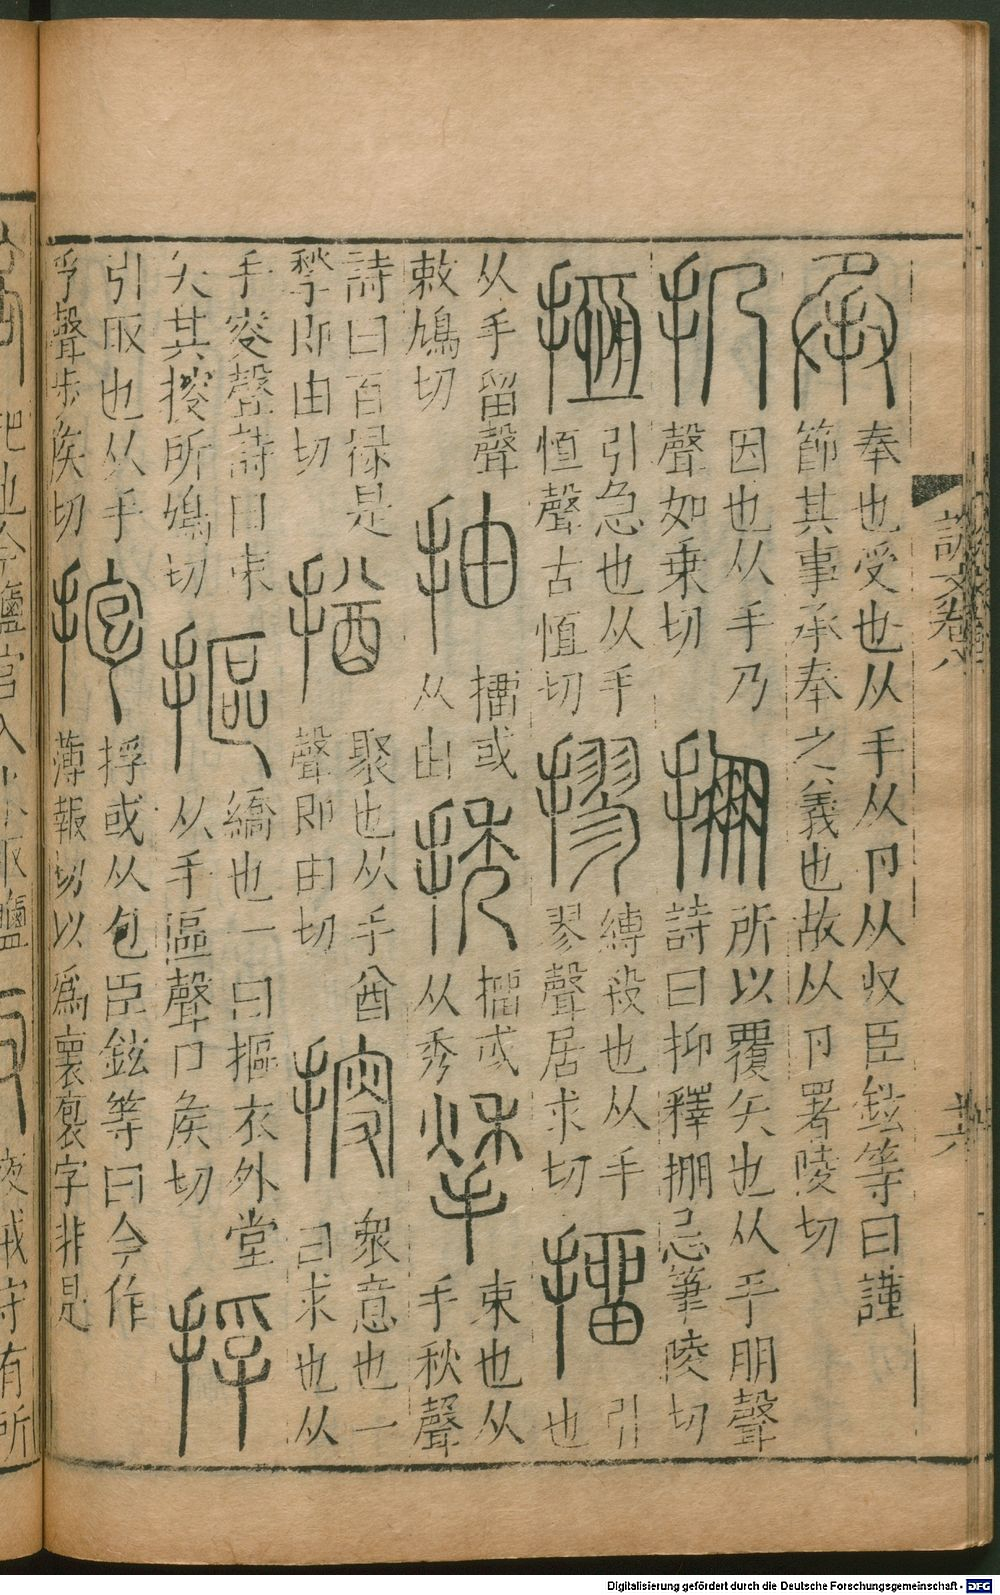 說文卷八
廿六
承
奉也受也从手从卪从収臣鉉等曰謹
節其事承奉之義也故从卪署陵切
扔
因也从手乃
聲如乗切
掤
所以覆矢也从手朋聲
詩曰抑釋掤忌筆陵切
揯
引急也从手
恒聲古恒切
摎
縛殺也从手
翏聲居求切
㩅
引
也
从手留聲
敕鳩切
抽
㩅或
从由
𢭆
㩅或
从秀
揫
束也从
手秋聲
詩曰百禄是
揫即由切
揂
聚也从手酋
聲即由切
㨅
衆意也一
曰求也从
手叜聲詩曰束
矢其㨅所鳩切
摳
繑也一曰摳衣外堂
从手區聲口矦切
捊
引取也从手
孚聲步矦切
抱
捊或从包臣鉉等曰今作
薄報切以爲褱袌字非是
把也今鹽官入水取鹽
夜戒守有所
Digitalisierung gefördert durch die Deutsche Forschungsgemeinschaft - DFG